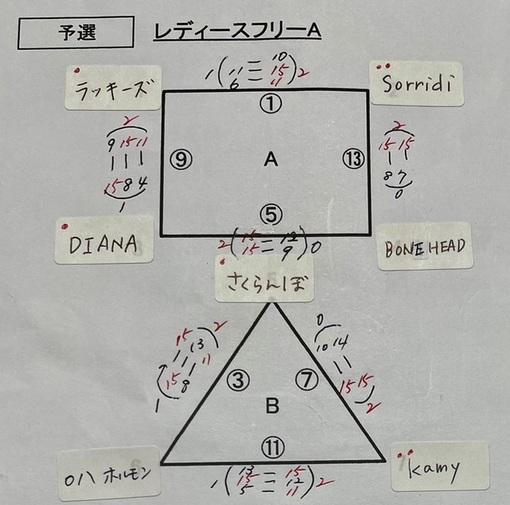 予選 レディースフリーA
1 ( 11 6 10 15 11 ) 2
ラッキーズ ① Sorridi
2
9 15 11
15 8 4
1
⑨ A ⑬
2
15 15
8 7
0
⑤
DIANA 2 ( 15 - 12 ) 0 BONEHEAD
15 - 9
さくらんぼ
2
15 13 11
7 15 8
1
0
10 14
15 15
2
③ ⑦
B
⑪
011 ホルモン Kamy
1 ( 13 - 15 ) 2
15 - 12
5 - 11